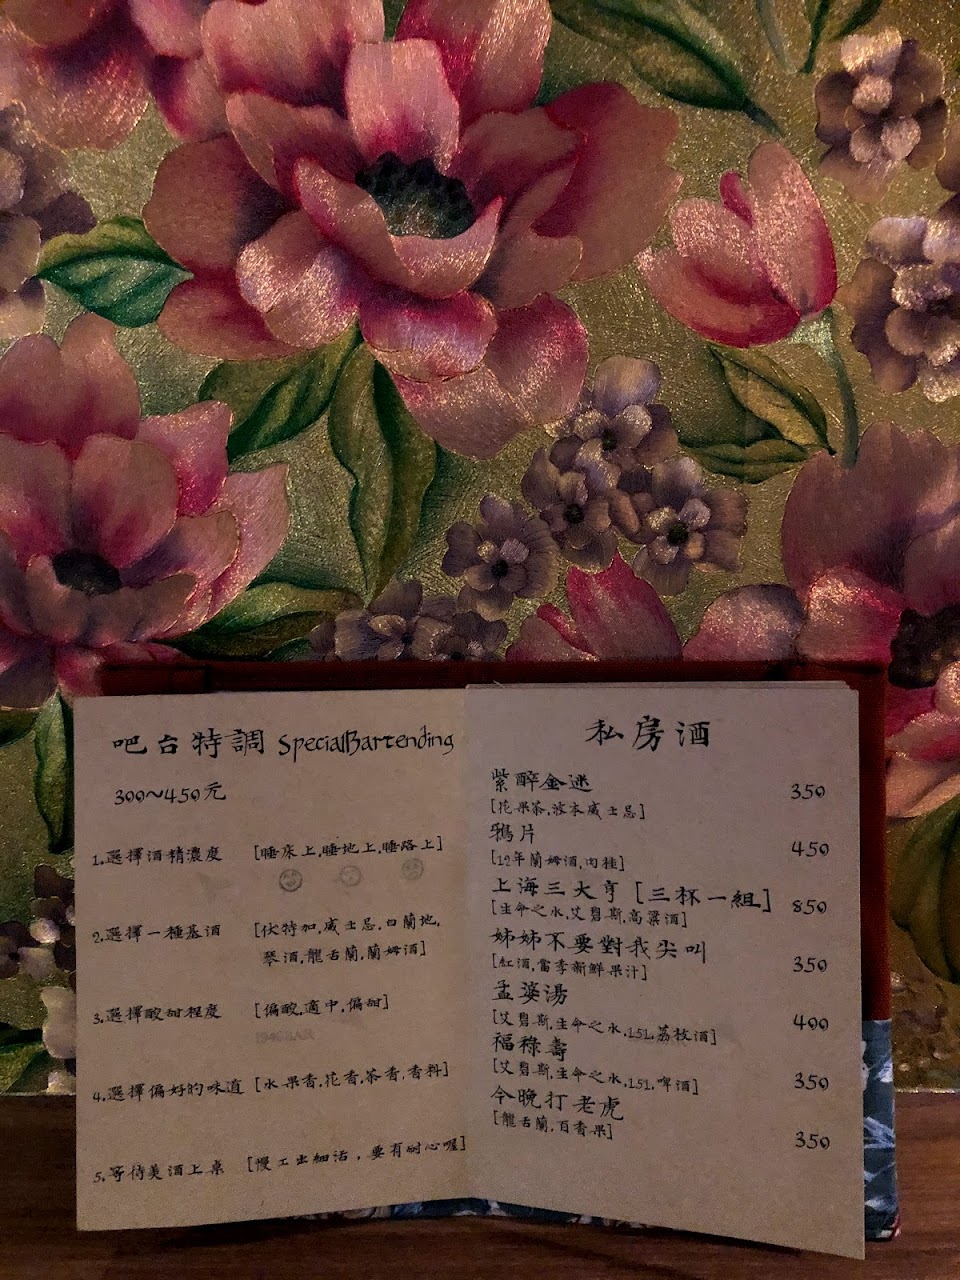 吧台特調 Special Bartending
300~450元
1.選擇酒精濃度 [睡床上,睡地上,睡路上]
2.選擇一種基酒 [伏特加,威士忌,白蘭地,
琴酒,龍舌蘭,蘭姆酒]
3.選擇酸甜程度 [偏酸,適中,偏甜]
4.選擇偏好的味道 [水果香,花香,茶香,香料]
5.等待美酒上桌 [慢工出細活,要有耐心喔]
私房酒
紫醉金迷 350
[花果茶,波本威士忌]
鴉片 450
[12年蘭姆酒,肉桂]
上海三大亨[三杯一組] 850
[生命之水,艾碧斯,高粱酒]
姊姊不要對我尖叫 350
[紅酒,當季新鮮果汁]
孟婆湯 400
[艾碧斯,生命之水,151,荔枝酒]
福祿壽 350
[艾碧斯,生命之水,151,啤酒]
今晚打老虎 350
[龍舌蘭,百香果]